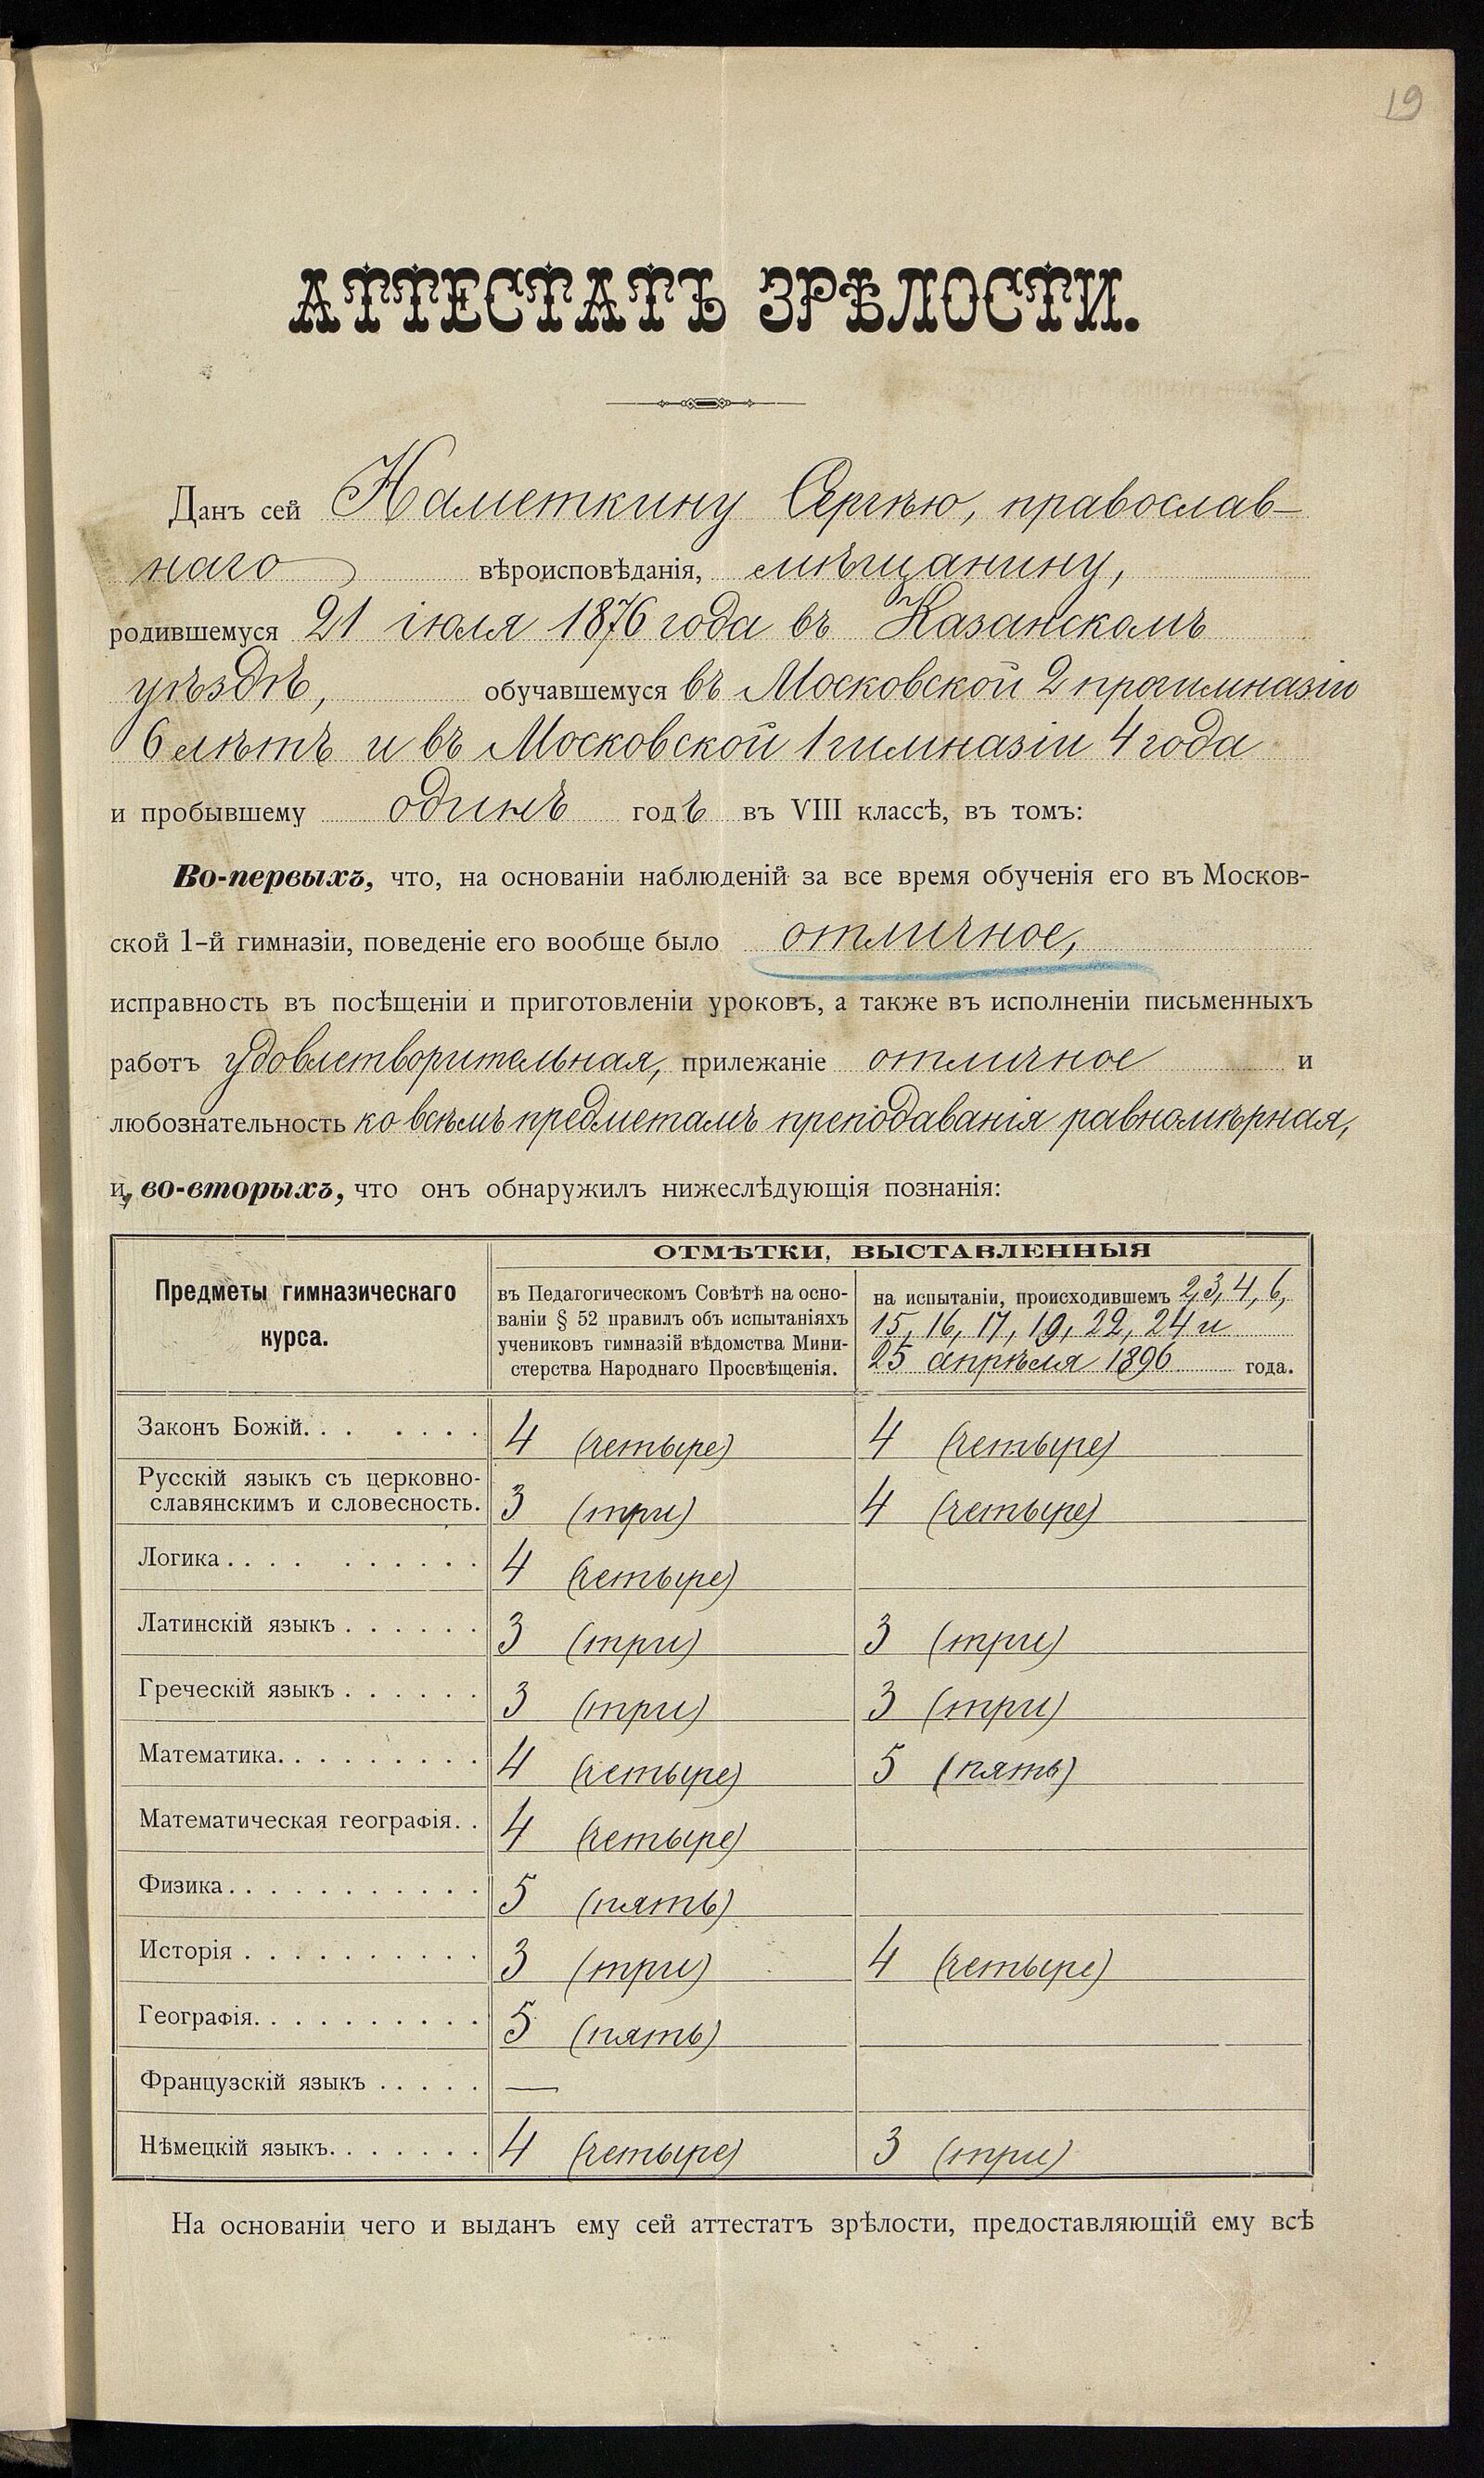 19
АТТЕСТАТЪ ЗРѢЛОСТИ.
Данъ сей Наметкину Сергѣю, православ-
наго вѣроисповѣданія, мѣщанину,
родившемуся 21 іюля 1876 года въ Казанскомъ
уѣздѣ, обучавшемуся въ Московской 2 прогимназіи
6 лѣтъ и въ Московской 1 гимназіи 4 года
и пробывшему одинъ годъ въ VIII классѣ, въ томъ:
Во-первыхъ, что, на основаніи наблюденій за все время обученія его въ Москов-
ской 1-й гимназіи, поведеніе его вообще было отличное,
исправность въ посѣщеніи и приготовленіи уроковъ, а также въ исполненіи письменныхъ
работъ удовлетворительная, прилежаніе отличное и
любознательность ко всѣмъ предметамъ преподаванія равномѣрная,
и, во-вторыхъ, что онъ обнаружилъ нижеслѣдующія познанія:
Предметы гимназическаго
курса.
ОТМѢТКИ, ВЫСТАВЛЕННЫЯ
въ Педагогическомъ Совѣтѣ на осно-
ваніи § 52 правилъ объ испытаніяхъ
учениковъ гимназій вѣдомства Мини-
стерства Народнаго Просвѣщенія.
на испытаніи, происходившемъ 2, 3, 4, 6,
15, 16, 17, 19, 22, 24 и
25 апрѣля 1896 года.
Законъ Божій. . . . . . . 4 (четыре) 4 (четыре)
Русскій языкъ съ церковно-
славянскимъ и словесность. 3 (три) 4 (четыре)
Логика . . . . . . . . . . 4 (четыре)
Латинскій языкъ . . . . . . 3 (три) 3 (три)
Греческій языкъ . . . . . . 3 (три) 3 (три)
Математика. . . . . . . . . 4 (четыре) 5 (пять)
Математическая географія. . 4 (четыре)
Физика . . . . . . . . . . . 5 (пять)
Исторія . . . . . . . . . . 3 (три) 4 (четыре)
Географія. . . . . . . . . . 5 (пять)
Французскій языкъ . . . . . —
Нѣмецкій языкъ. . . . . . . 4 (четыре) 3 (три)
На основаніи чего и выданъ ему сей аттестатъ зрѣлости, предоставляющій ему всѣ